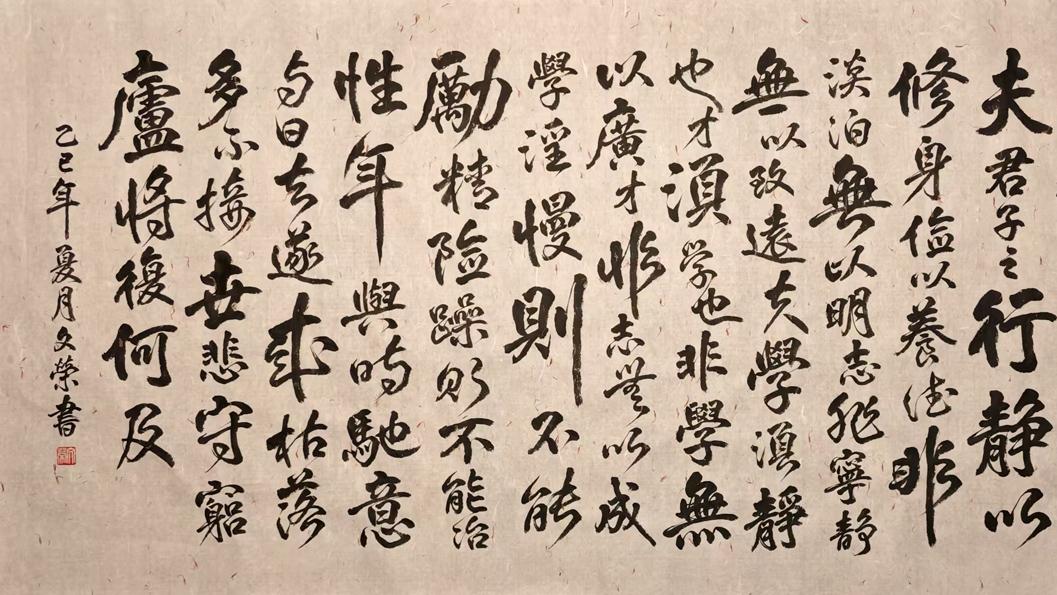 夫君子之行静以
修身儉以養德非
淡泊無以明志非寧静
無以致遠夫學須静
也才須学也非學無
以廣才非志無以成
學淫慢則不能
勵精險躁則不能治
性年與時馳意
与日去遂成枯落
多不接世悲守窮
廬將復何及
乙巳年夏月文榮書